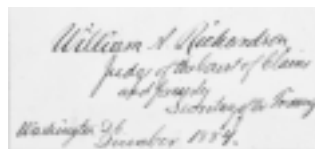 William A. Richardson
Judge of the Court of Claims
and formerly
Secretary of the Treasury
Washington
December 1884.